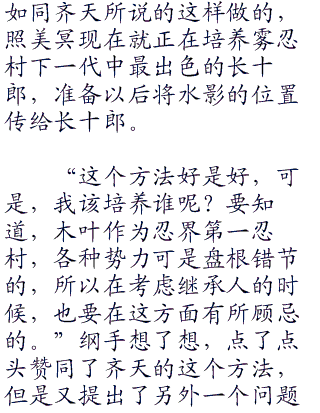 如同齐天所说的这样做的，
照美冥现在就正在培养雾忍
村下一代中最出色的长十
郎，准备以后将水影的位置
传给长十郎。
“这个方法好是好，可
是，我该培养谁呢？要知
道，木叶作为忍界第一忍
村，各种势力可是盘根错节
的，所以在考虑继承人的时
候，也要在这方面有所顾忌
的。”纲手想了想，点了点
头赞同了齐天的这个方法，
但是又提出了另外一个问题